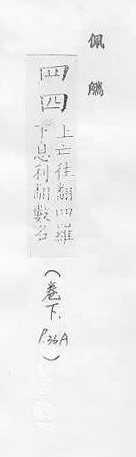 佩觿
罒四
上亡往翻四羅
下息利翻數名
(卷下. P.36A)